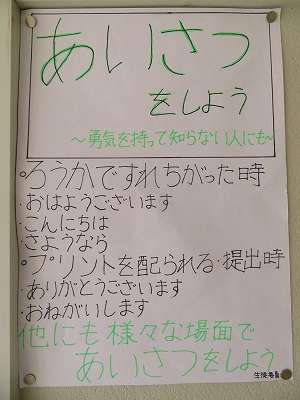 あいさつ
をしよう
～勇気を持って知らない人にも～
・ろうかですれちがった時
・おはようございます
・こんにちは
・さようなら
・プリントを配られる・提出時
・ありがとうございます
・おねがいします
他にも様々な場面で
あいさつをしよう